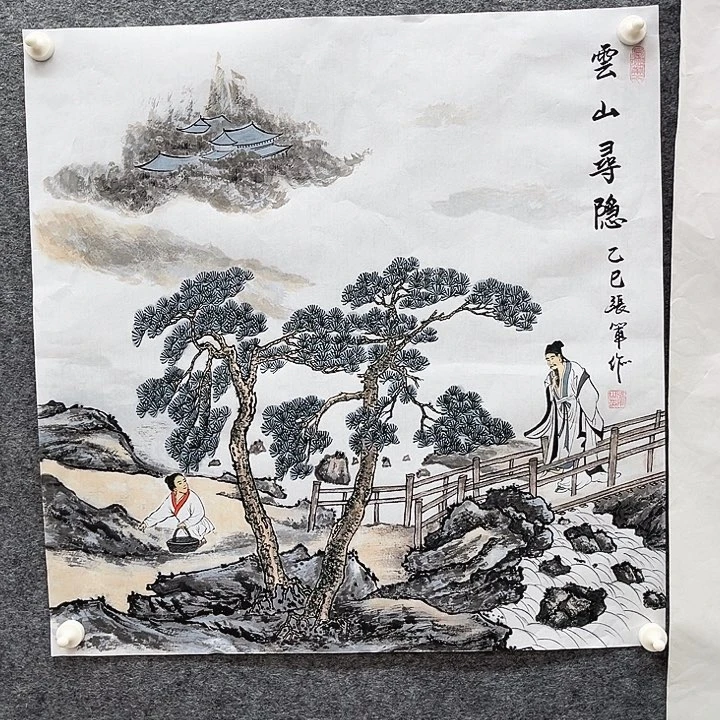 雲山尋隐
乙巳張軍作